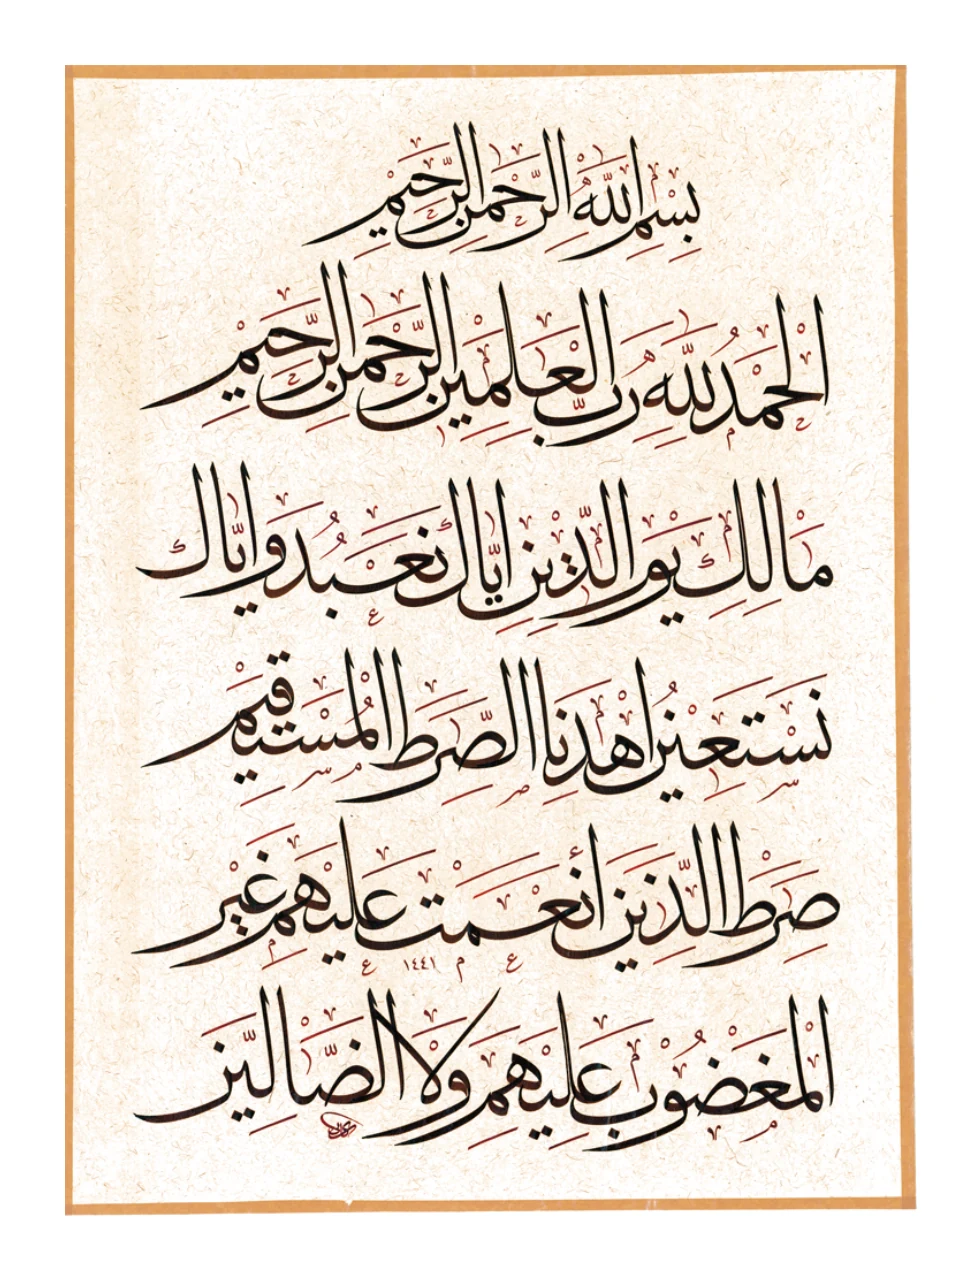 بِسْمِ اللَّهِ الرَّحْمٰنِ الرَّحِيمِ
الْحَمْدُ لِلَّهِ رَبِّ الْعَالَمِينَ الرَّحْمٰنِ الرَّحِيمِ
مَالِكِ يَوْمِ الدِّينِ إِيَّاكَ نَعْبُدُ وَإِيَّاكَ
نَسْتَعِينُ اهْدِنَا الصِّرَٰطَ الْمُسْتَقِيمَ
صِرَٰطَ الَّذِينَ أَنْعَمْتَ عَلَيْهِمْ غَيْرِ
١٤٤١
الْمَغْضُوبِ عَلَيْهِمْ وَلَا الضَّالِّينَ